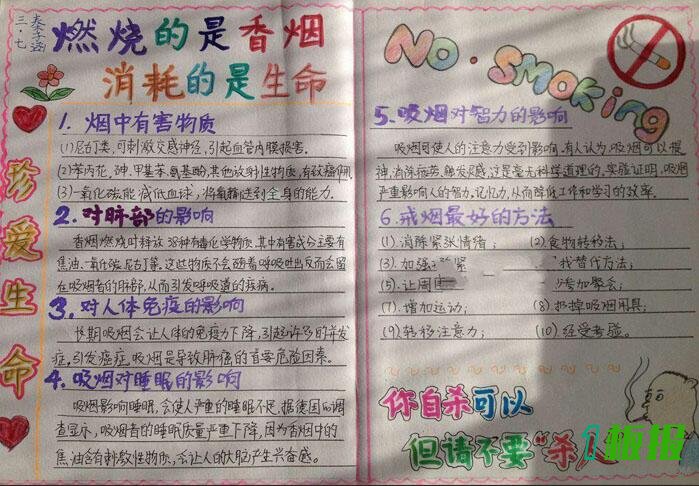 三.七
秦子涵
燃烧的是香烟
消耗的是生命
珍爱生命
1. 烟中有害物质
(1)尼古丁类,可刺激交感神经,引起血管内膜损害。
(2)苯丙花,砷,甲基苯,氨基酚,其他放射性物质,有致癌作用
(3)一氧化碳能减低血球,将氧输送到全身的能力。
2. 对肺部的影响
香烟燃烧时释放38种有毒化学物质,其中有害成分主要有
焦油、一氧化碳,尼古丁等。这些物质不会随着呼吸吐出反而会留
在吸烟者的肺部,从而引发呼吸道的疾病。
3. 对人体免疫的影响
长期吸烟会让人体的免疫力下降,引起许多的并发
症,引发癌症,吸烟是导致肺癌的首要危险因素。
4. 吸烟对睡眠的影响
吸烟影响睡眠,会使人严重的睡眠不足,据德国的调
查显示,吸烟者的睡眠质量严重下降,因为香烟中的
焦油含有刺激性物质,会让人的大脑产生兴奋感。
NO·SMOKing
5. 吸烟对智力的影响
吸烟可使人的注意力受到影响,有人认为,吸烟可以提
神,消除疲劳,触发灵感,这是毫无科学道理的,实验证明,吸烟
严重影响人的智力,记忆力,从而降低工作和学习的效率。
6. 戒烟最好的方法
(1).消除紧张情绪; (2)食物转移法;
(3).加强 紧 找替代方法;
(5).让周围 参加聚会;
(7).增加运动; (8).扔掉吸烟用具;
(9)转移注意力; (10).经受考验。
你自杀可以
但请不要“杀人
1板报